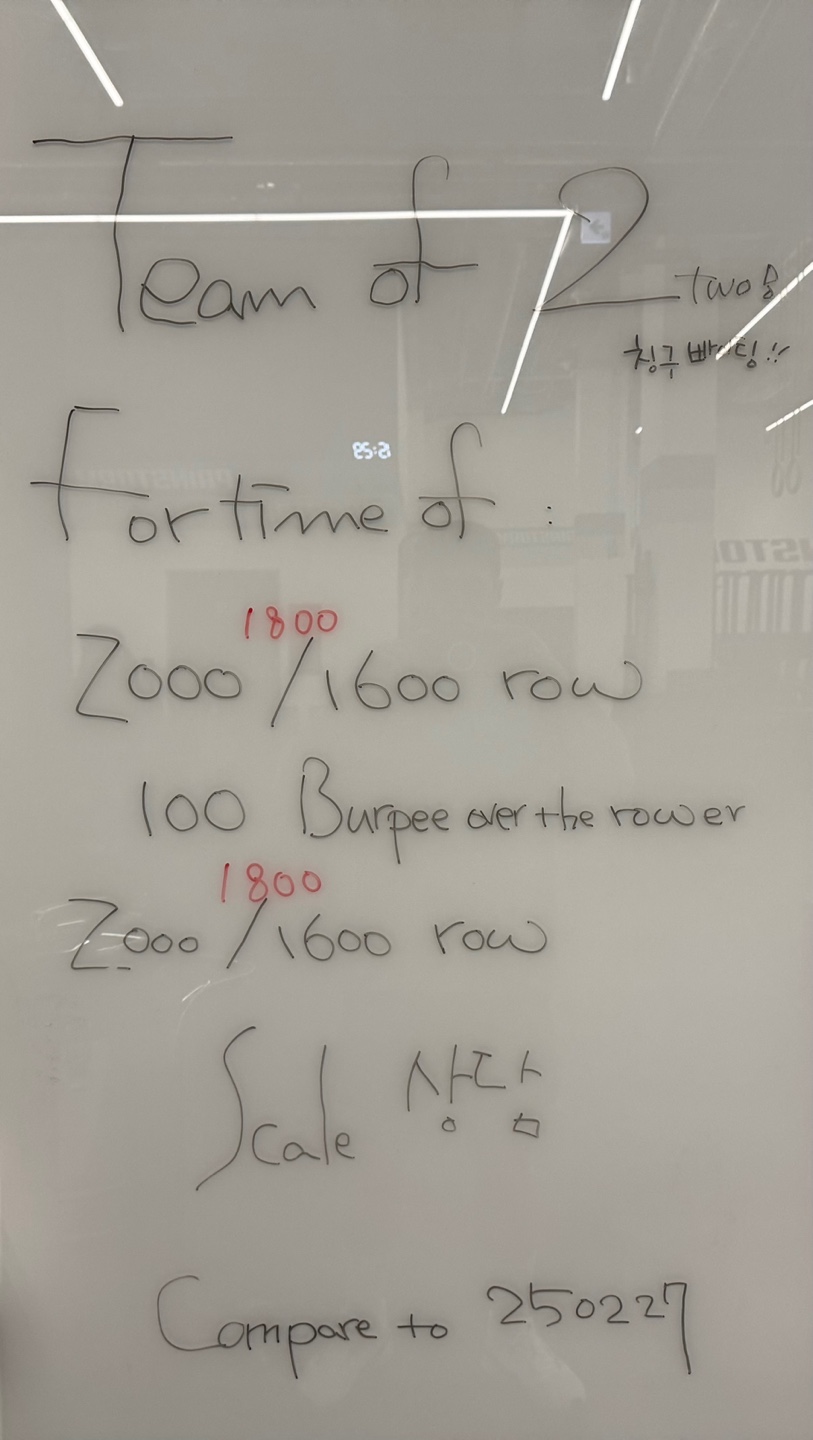 Team of 2 Two용
친구 빠이팅!!
For time of :
1800
2000 / 1600 row
100 Burpee over the rower
1800
2000 / 1600 row
Scale 상담
Compare to 250227